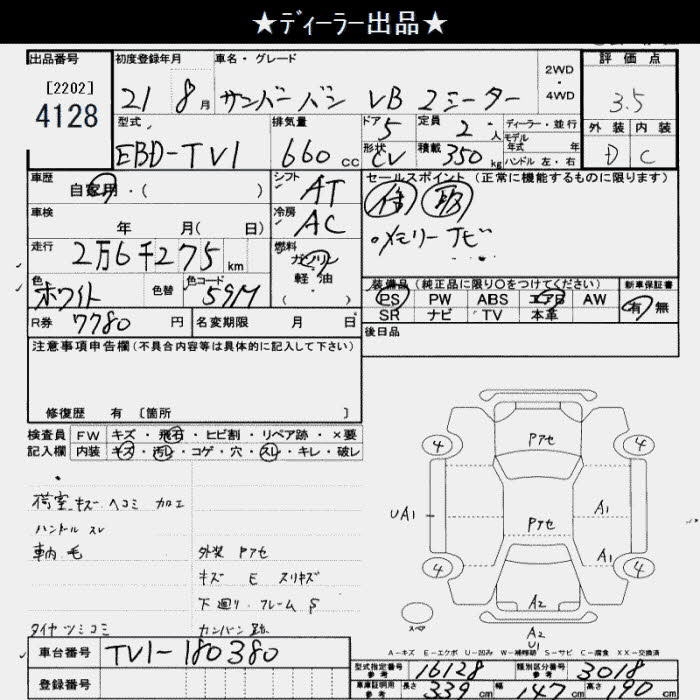 ★ディーラー出品★
出品番号
[2202]
4128
初度登録年月
21 8月
車名・グレード
サンバーバン VB 2シーター
2WD
・
4WD
評価点
3.5
外装 内装
D C
型式
EBD-TV1
排気量
660 cc
ドア 5
形状 CV
定員 2人
積載 350 kg
ディーラー・並行
モデル
年式 年
ハンドル 左・右
車歴
自家用・( )
シフト
AT
車検
年 月( 日)
冷房
AC
走行
2万6千275 km
燃料
ガソリン
・
軽油
( )
色
ホワイト
色替
色コード
59M
R券 7780 円
名変期限 月 日
セールスポイント (正常に機能するものに限ります)
メモリーナビ
装備品 (純正品に限り○をつけてください)
新車保証書
PS PW ABS エアB AW
SR ナビ TV 本革
有 無
後日品
注意事項申告欄 (不具合内容等は具体的に記入して下さい)
修復歴 有 [箇所 ]
検査員
記入欄
FW キズ・飛石・ヒビ割・リペア跡・×要
内装 キズ・汚れ・コゲ・穴・スレ・キレ・破レ
荷室 キズ ヘコミ 加工
ハンドル スレ
車内 毛
外装 Pアセ
キズ E スリキズ
下廻り・フレーム S
タイヤツミコミ
カンバン跡
Pアセ
Pアセ
4
4
4
4
UA1
A1
A1
A2
A2
U1
スペア
A-キズ E-エクボ U-凹み W-補修跡 S-サビ C-腐食 XX-交換済
車台番号
TV1-180380
登録番号
型式指定番号
参考
16128
類別区分番号
参考
3018
車庫証明用
参考
長さ 339 cm
幅 147 cm
高さ 190 cm